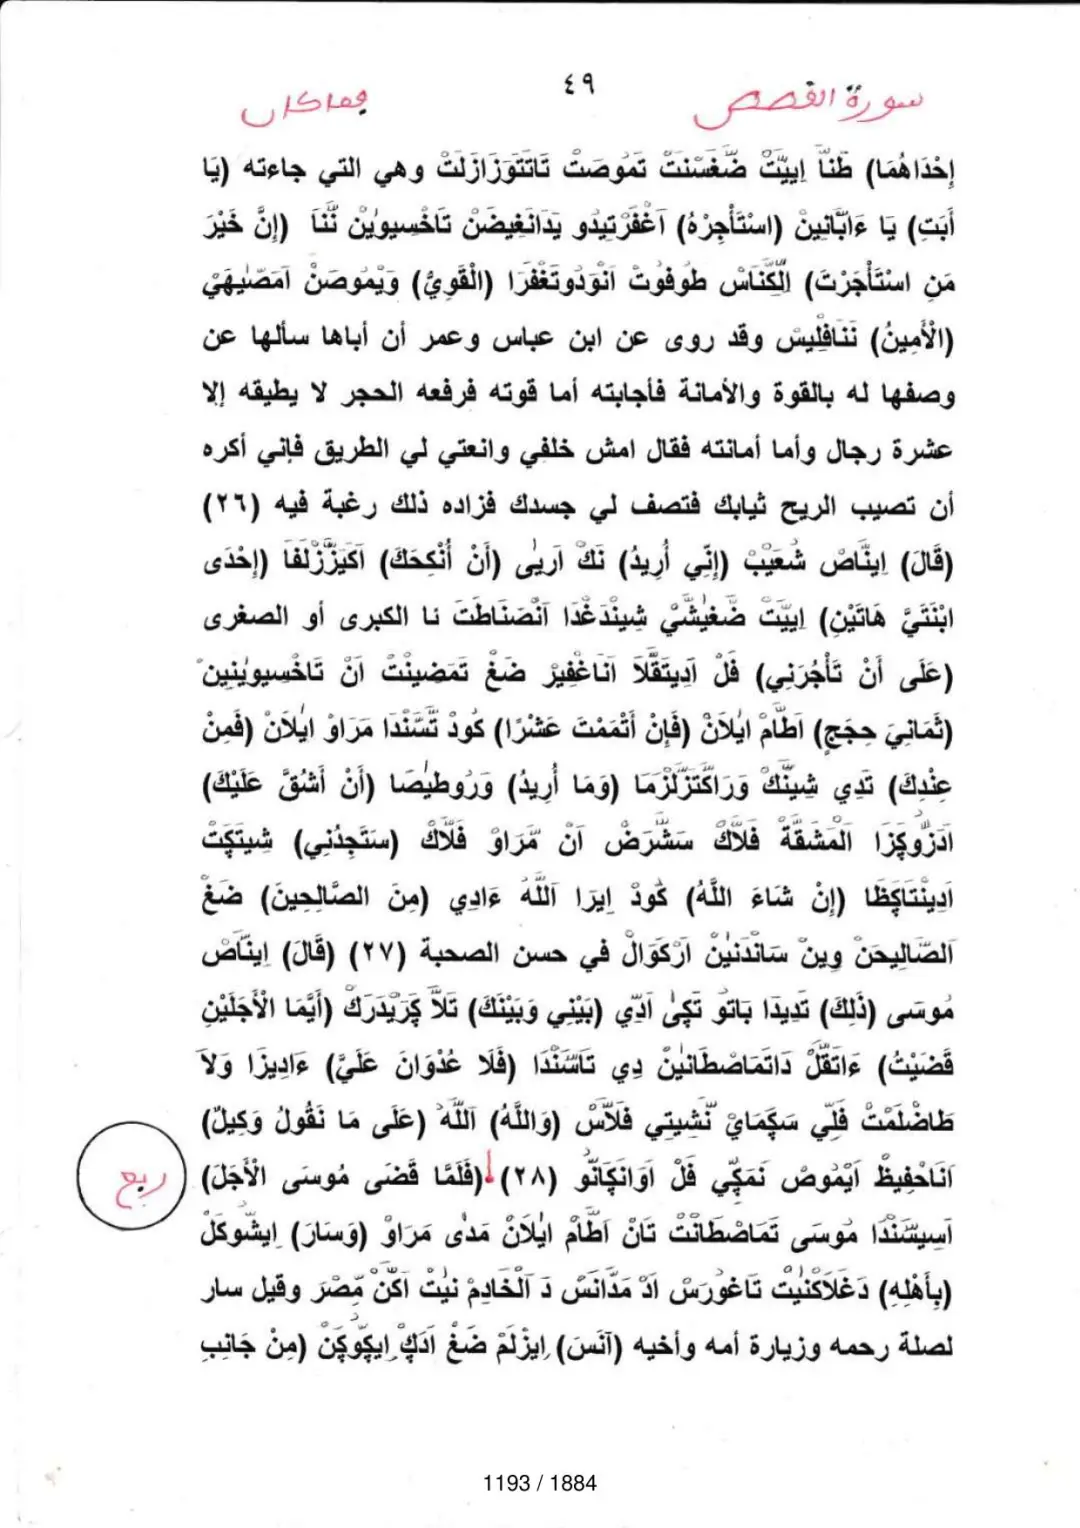 سورة القصص
٤٩
فماكان
إِحْدَاهُمَا) طَنّاَ اِييَّتْ ضَّغَسْنتْ تَمُوصَتْ تَاتَتَوَزَازَلَتْ وهي التي جاءته (يَا
أَبَتِ) يَا ءَابَّانِينْ (اسْتَأْجِرْهُ) اَغْفَرْتِيدُو يَدَانَغِيضَنْ تَاخْسِيوِينْ نَّنَا (إِنَّ خَيْرَ
مَنِ اسْتَأْجَرْتَ) اِلْكَّنَاسْ طُوفُوتْ اَنْوَدُوتَغْفَرَا (الْقَوِيُّ) وَيْمُوصَنْ اَمَصّٰيهَيْ
(الْأَمِينُ) نَنَافْلِيسْ وقد روى عن ابن عباس وعمر أن أباها سألها عن
وصفها له بالقوة والأمانة فأجابته أما قوته فرفعه الحجر لا يطيقه إلا
عشرة رجال وأما أمانته فقال امش خلفي وانعتي لي الطريق فإني أكره
أن تصيب الريح ثيابك فتصف لي جسدك فزاده ذلك رغبة فيه (٢٦)
(قَالَ) اِينَّاصْ شُعَيْبْ (إِنِّي أُرِيدُ) نَكْ اَرِيٰى (أَنْ أُنْكِحَكَ) اَكِيَزَّزْلَفَا (إِحْدَى
ابْنَتَيَّ هَاتَيْنِ) اِييَّتْ ضَّغِيشِّيْ شِينْدَغْدَا اَنْصَنَاطَتَ نا الكبرى أو الصغرى
(عَلَى أَنْ تَأْجُرَنِي) فَلْ اَدِيتَقَّلَا اَنَاغْفِيرْ ضَغْ تَمَضِينْتْ اَنْ تَاخْسِيوِينِينْ
(ثَمَانِيَ حِجَجٍ) اَطَّامْ اِيلَانْ (فَإِنْ أَتْمَمْتَ عَشْرًا) كُودْ تَسَّنْدَا مَرَاوْ اِيلَانْ (فَمِنْ
عِنْدِكَ) تَدِي شِينَّكْ وَرَاكْتَزَلْزْمَا (وَمَا أُرِيدُ) وَرُوطِيصَا (أَنْ أَشُقَّ عَلَيْكَ)
اَلْمَشَقَّةْ فَلَّاكْ سَشَّرَضْ اَنْ مَّرَاوْ فَلَّاكْ (سَتَجِدُنِي) شِيتَكِتْ
اَدِينْتَاكِظَا (إِنْ شَاءَ اللَّهُ) كُودْ اِيرَا اَللَّهُ ءَادِي (مِنَ الصَّالِحِينَ) ضَغْ
اَلصَّالِيحَنْ وِينْ سَانْدَنِينْ اَرْكَوَالْ في حسن الصحبة (٢٧) (قَالَ) اِينَّاصْ
مُوسَى (ذَلِكَ) تَدِيدَا بَاتُو تَكِىٰ اَدِّي (بَيْنِي وَبَيْنَكَ) تَلَّا كَرِيْدَرَكْ (أَيَّمَا الْأَجَلَيْنِ
قَضَيْتُ) ءَاتَقَّلْ دَاتَمَاصْطَانِينْ دِي تَاسَّنْدَا (فَلَا عُدْوَانَ عَلَيَّ) ءَادِيزَا وَلَا
طَاضْلَمْتْ فَلِّي سَكِمَايْ نَّشِيتِي فَلَّاسْ (وَاللَّهُ) اَللَّهْ (عَلَى مَا نَقُولُ وَكِيلٌ)
اَنَاحْفِيظْ اَيْمُوصْ نَمَكِّي فَلْ اَوَانَكَانُو (٢٨) (فَلَمَّا قَضَى مُوسَى الْأَجَلَ)
ربع
اَسِيسَّنْدَا مُوسَى تَمَاصْطَانْتْ تَانْ اَطَّامْ اِيلَانْ مَدٰى مَرَاوْ (وَسَارَ) اِيشُّوكَلْ
(بِأَهْلِهِ) دَغْلَاكْنِيتْ تَاغُورَسْ اَدْ مَدَّانَسْ دَ اَلْخَادِمْ نِيتْ اَكَنْ مِّصْرَ وقيل سار
لصلة رحمه وزيارة أمه وأخيه (آنَسَ) اِيزْلَمْ ضَغْ اَدَكْ اِيكُّوكَنْ (مِنْ جَانِبِ
1193 / 1884